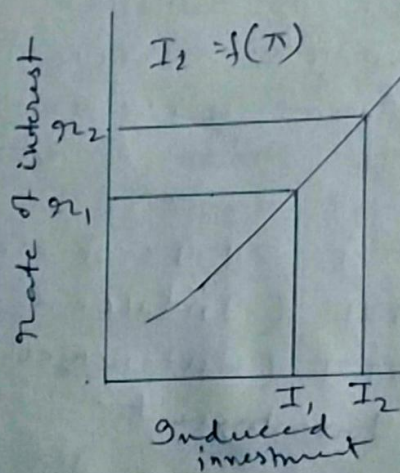 I₂ = f(π)
Rate of interest
r₂
r₁
I₁ I₂
Induced
investment